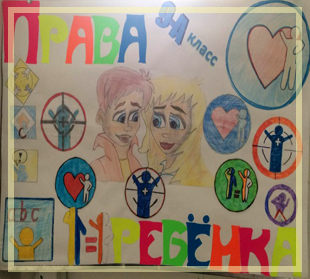 ПРАВА
9-А класс
abc
РЕБЁНКА